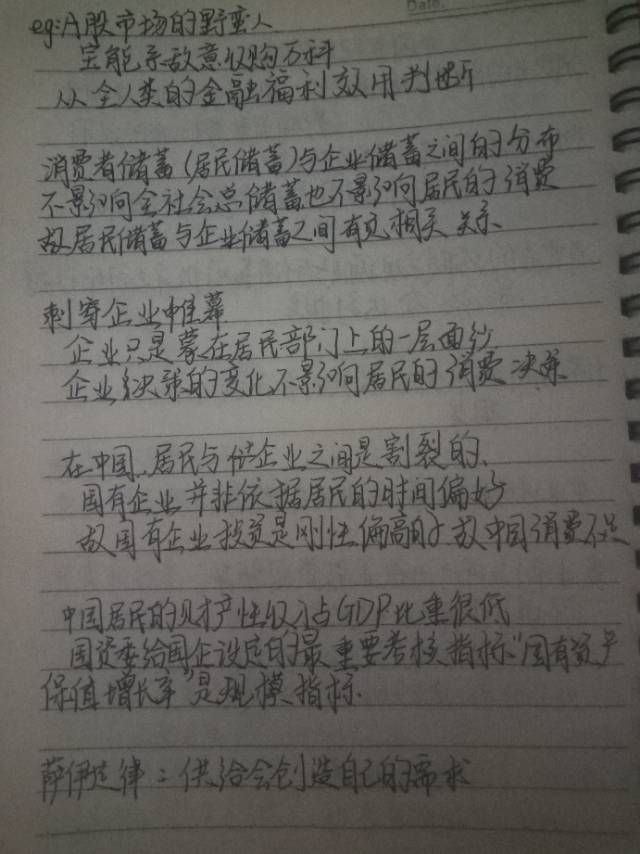 Date.
eg:A股市场的野蛮人
宝能系敌意收购万科
从全人类的金融福利效用判断
消费者储蓄(居民储蓄)与企业储蓄之间的分布
不影响全社会总储蓄也不影响居民的消费
故居民储蓄与企业储蓄之间有负相关关系
刺穿企业帷幕
企业只是蒙在居民部门上的一层面纱
企业决策的变化不影响居民的消费决策
在中国,居民与企业之间是割裂的,
国有企业并非依据居民的时间偏好
故国有企业投资是刚性偏高的 故中国消费不足
中国居民的财产性收入占GDP比重很低
国资委给国企设定的最重要考核指标"国有资产
保值增长率"是规模指标.
萨伊定律:供给会创造自己的需求